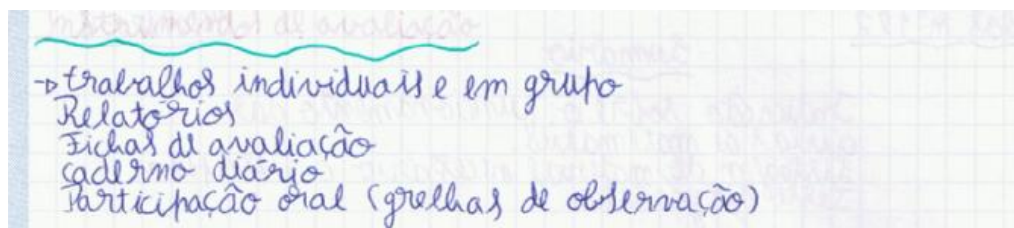 Instrumentos de avaliação
→ trabalhos individuais e em grupo
Relatórios
Fichas de avaliação
caderno diário
Participação oral (grelhas de observação)